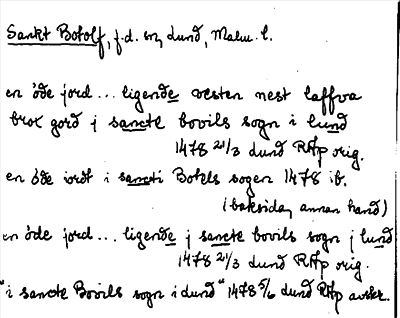 Sankt Botolf, f.d. sn, Lund, Malm. l.
en øde jord... ligende vesten nest laffva
brox gord j sancte bovils sogn i lund
1478 21/3 Lund RAp orig.
en øde iordt i sancti Botels sogen 1478 ib.
(baksida, annan hand)
en øde jord... ligende j sancte bovils sogn j lund
1478 21/3 Lund RAp orig.
"i sancte Bovils sogn i Lund" 1478 5/6 Lund RAp avskr.